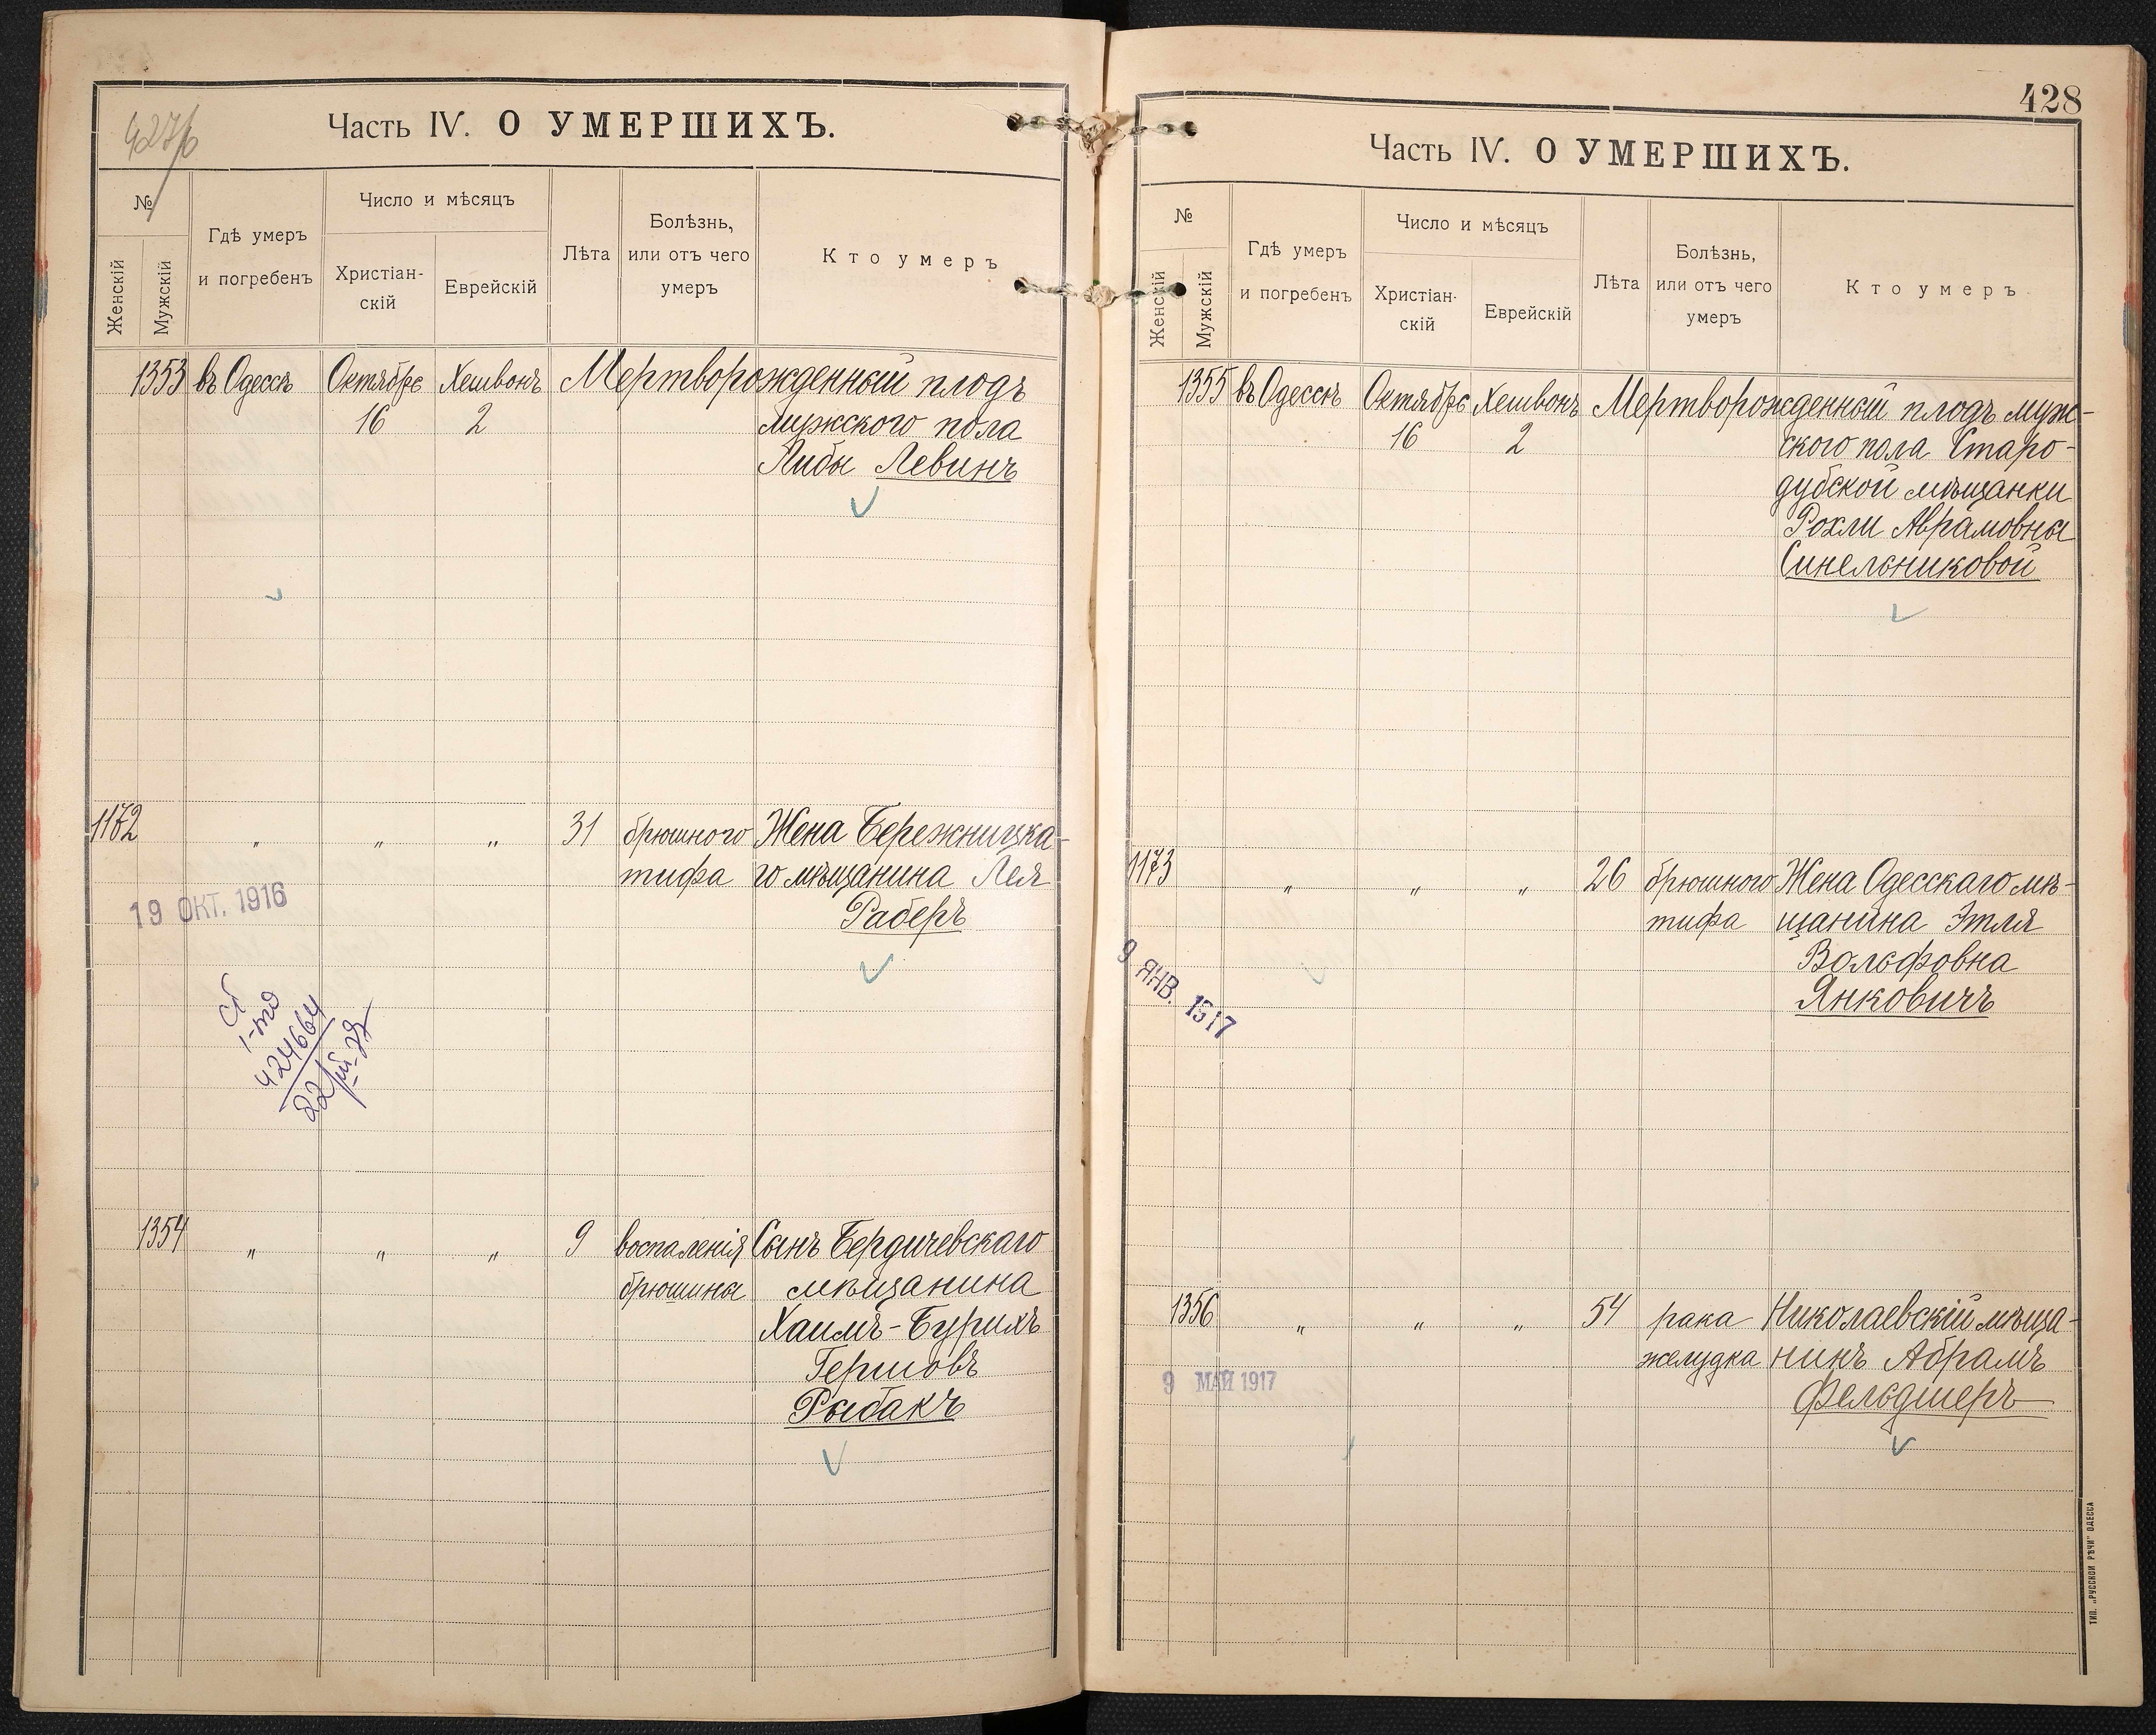 427/б
Часть IV. О УМЕРШИХЪ.
№
Женскій
Мужскій
Гдѣ умеръ
и погребенъ
Число и мѣсяцъ
Христіан-
скій
Еврейскій
Лѣта
Болѣзнь,
или отъ чего
умеръ
Кто умеръ
1353 въ Одессѣ Октябрѣ Хешвонъ Мертворожденный плодъ
16 2 мужского пола
Либы Левинъ
1172 " " " 31 брюшного Жена Бережницка-
тифа го мѣщанина Лея
19 ОКТ. 1916
Раберъ
424664
1354 " " " 9 воспаленія Сынъ Бердичевскаго
брюшины мѣщанина
Хаимъ-Бурихъ
Гершовъ
Рыбакъ
428
Часть IV. О УМЕРШИХЪ.
№
Женскій
Мужскій
Гдѣ умеръ
и погребенъ
Число и мѣсяцъ
Христіан-
скій
Еврейскій
Лѣта
Болѣзнь,
или отъ чего
умеръ
Кто умеръ
1355 въ Одессѣ Октябрѣ Хешвонъ Мертворожденный плодъ муж-
16 2 ского пола Старо-
дубской мѣщанки
Рохли Аврамовны
Синельниковой
1173 " " " 26 брюшного Жена Одесскаго мѣ-
тифа щанина Этля
Вольфовна
9 ЯНВ. 1917
Янковичъ
1356 " " " 54 рака Николаевскій мѣща-
желудка нинъ Абрамъ
9 МАЙ 1917
Фельдшеръ
ТИП. „РУССКОЙ РѢЧИ" ОДЕССА